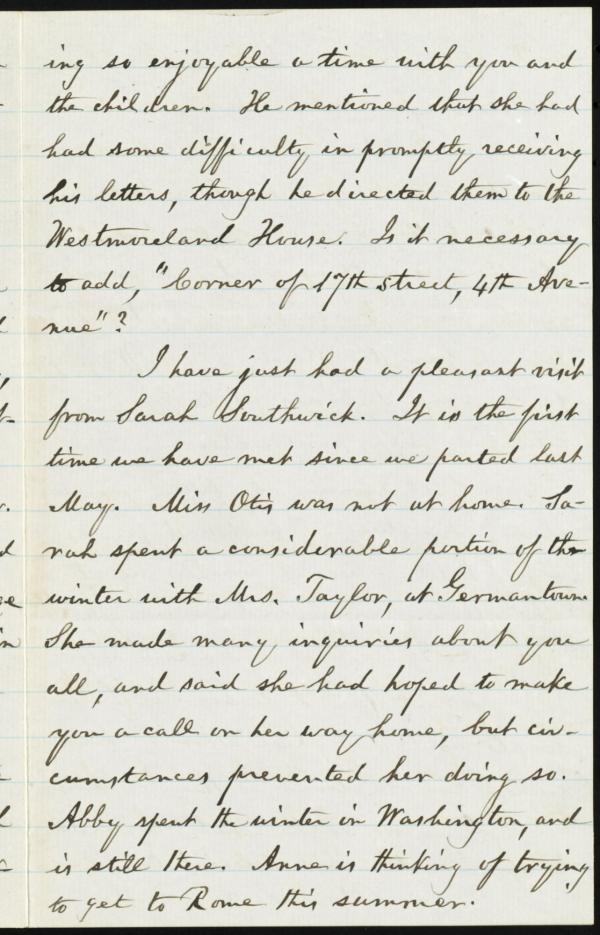 ing so enjoyable a time with you and
the children. He mentioned that she had
had some difficulty in promptly receiving
his letters, though he directed them to the
Westmoreland House. Is it necessary
to add, "Corner of 17th street, 4th Ave-
nue"?
I have just had a pleasant visit
from Sarah Southwick. It is the first
time we have met since we parted last
May. Miss Otis was not at home. Sa-
rah spent a considerable portion of the
winter with Mrs. Taylor, at Germantown.
She made many inquiries about you
all, and said she had hoped to make
you a call on her way home, but cir-
cumstances prevented her doing so.
Abby spent the winter in Washington, and
is still there. Anne is thinking of trying
to get to Rome this summer.